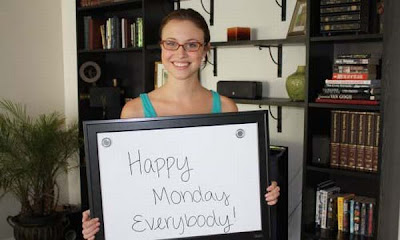 Happy
Monday
Everybody!